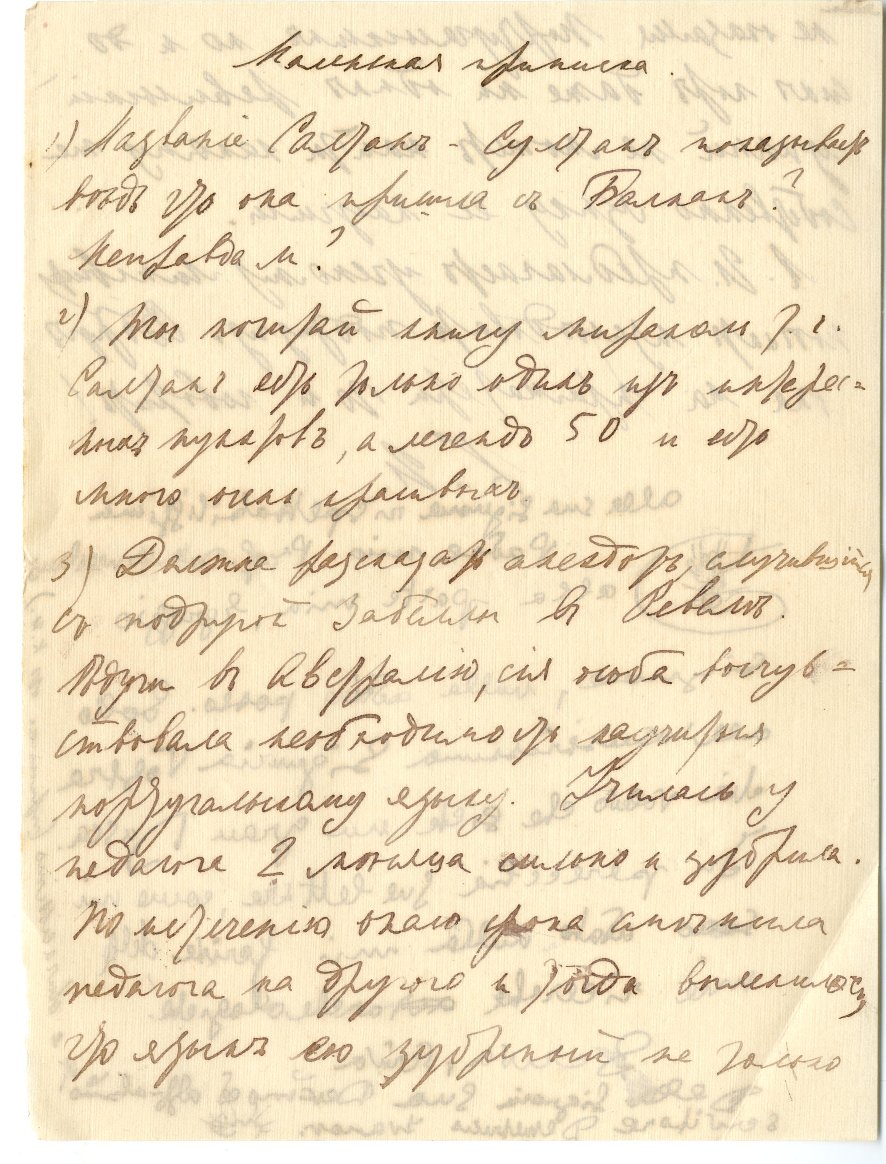 Маленькая приписка.
1) Названіе Салтанъ - Султанъ показываетъ
вѣдь что она пришла съ Балканъ?
Неправда ли?
2) Ты почитай книгу т. к.
Салтанъ есть только одинъ изъ интерес=
ныхъ нумеровъ, а легендъ 50 и есть
много очень красивыхъ.
3) Должна разсказать анекдотъ, случившійся
съ подругой Забѣллы въ Ревелѣ.
Ѣдучи въ Австралію, сія особа почув=
ствовала необходимость научиться
португальскому языку. Училась у
педагога 2 мѣсяца сильно и зубрила.
По истеченію онаго срока смѣнила
педагога на другого и тогда выяснилось,
что языкъ ею зубренный не только